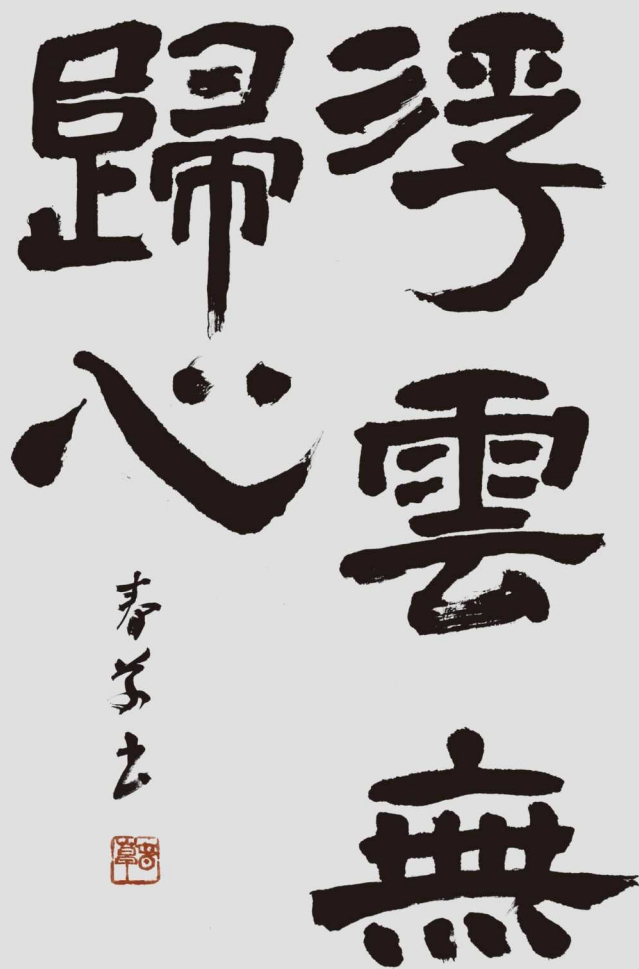 浮雲無
歸心
春草書